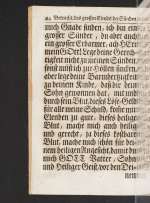 24 Betracht. des grossen Elends des Sünders
mich Gnade finden, ich bin ein
grosser Sünder, du aber auch
ein grosser Erbarmer, ach HErr
mein GOtt! lege deine Gerech-
tigkeit nicht zu meinen Sünden,
sonst müßt ich zur Höllen sincken,
aber lege deine Barmhertzigkeit
zu denen Kranken, daß der dein
Sohn gewonnen hat, mit und
durch sein Blut, dieses Löse-Geld
für alle meine Schuld, komt mir
Elenden zu gute, dieses heilige
Blut, mache mich auch heilig
und gerecht, ja dieses kostbare
Blut, mache mich schön für dei-
nem heiligen Angesicht, damit du
mich GOTT Vatter, Sohn
und Heiliger Geist, vor den Dei-
nen